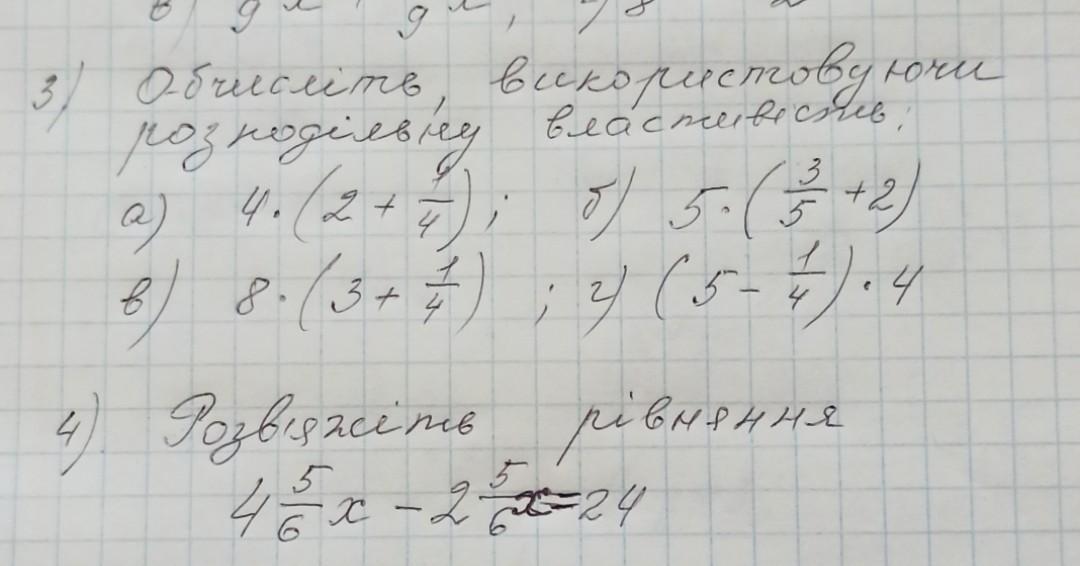 3) Обчисліть, використовуючи
розподільну властивість:
а) 4·(2 + 1/4); б) 5·(3/5 + 2)
в) 8·(3 + 1/4) ; г) (5 - 1/4)·4
4) Розв'яжіть рівняння
4 5/6 x - 2 5/6 x = 24